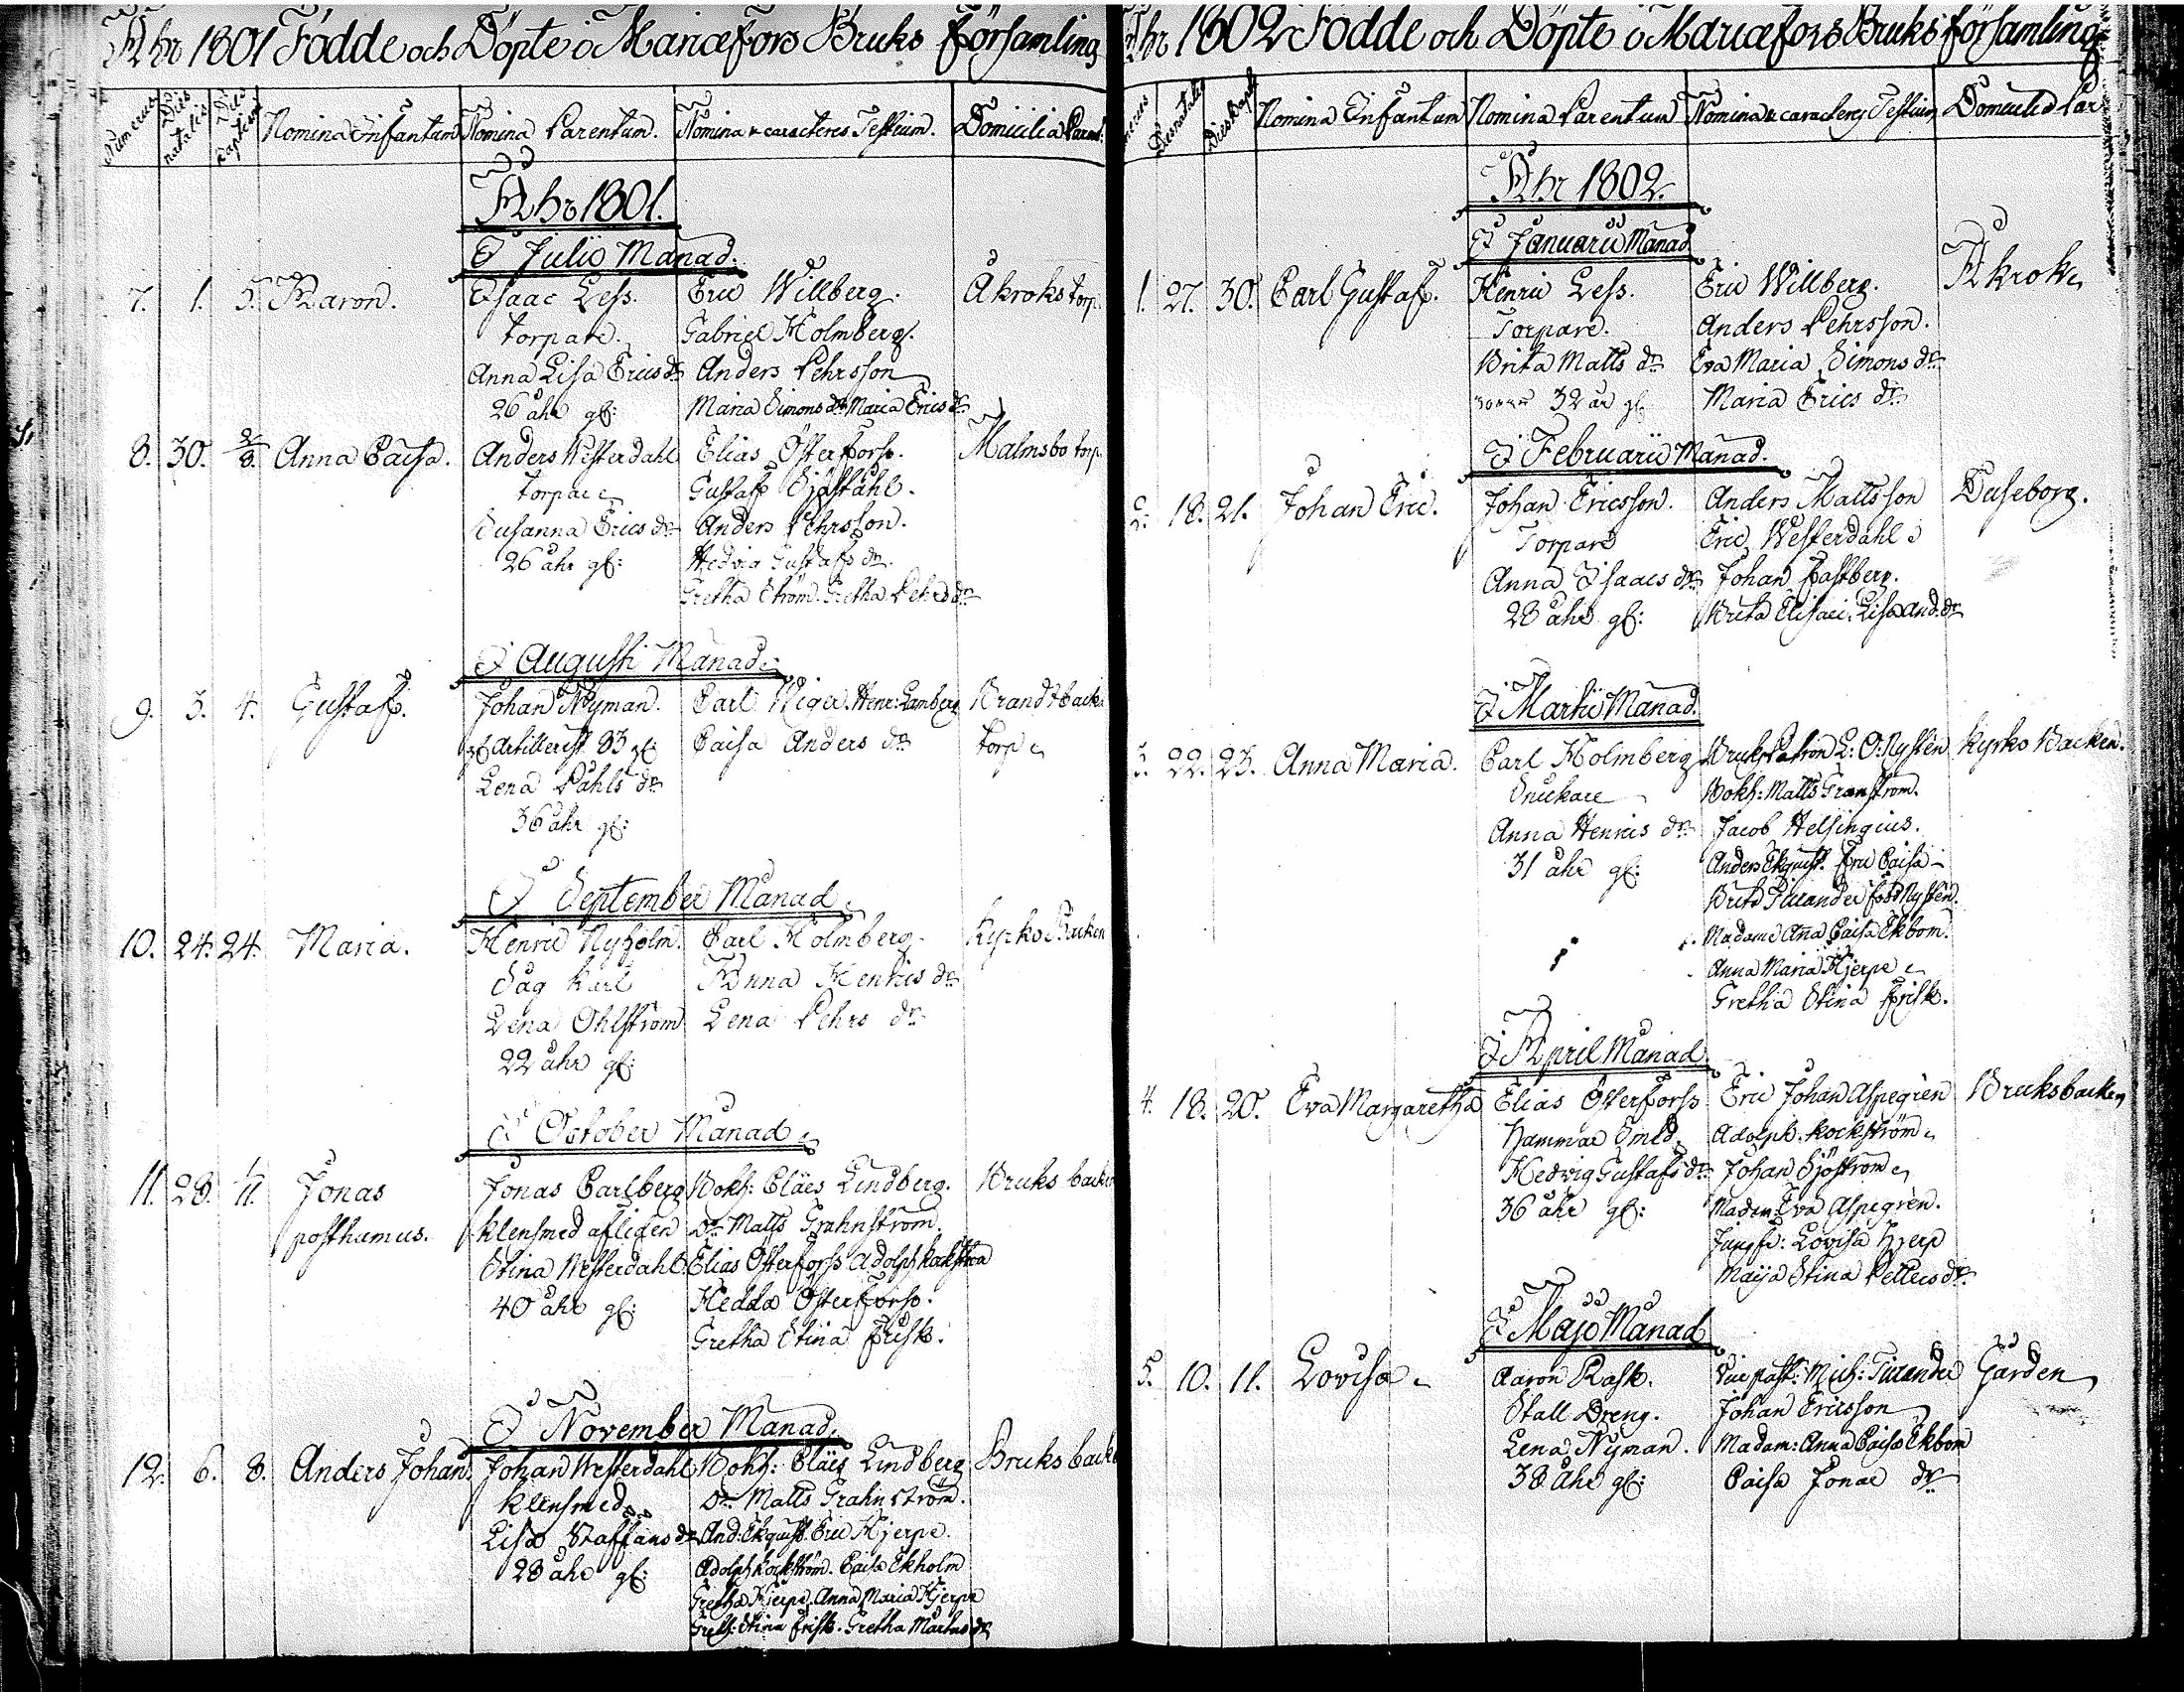 Åhr 1801 Födde och Döpte i Mariæfors Bruks församling
Numerus
Dies natalis
Dies Baptism
Nomina Infantum
Nomina Parentum.
Nomina & caracteres Testium.
Domicilia Parent:
Åhr 1801.
I Julii Månad.
7. 1. 5. Aaron. Isaac Less. Eric Willberg. Åkroks torp.
torpare. Gabriel Holmberg.
Anna Lisa Erics dr Anders Pehrsson
26 åhr gl: Maria Simons dr Maria Erics dr
8. 30. 2/8. Anna Caisa. Anders Westerdahl Elias Österforss. Malmsbo torp
torpare Gustaf Sjöståhl.
Susanna Erics dr Anders Pehrsson.
26 åhr gl: Hedvig Gustafs dr.
Gretha Ström. Gretha Pehrs dr
I Augusti Månad.
9. 3. 4. Gustaf. Johan Nyman. Carl Wiga. Henr: Lamberg Brandtbacka
Artillerist 33 gl: Caisa Anders dr torp
Lena Påhls dr
36 åhr gl:
I September Månad.
10. 24. 24. Maria. Henric Nyholm. Carl Holmberg. Kyrko Backen
Såg Karl Anna Henrics dr
Lena Ohlström Lena Pehrs dr
22 åhr gl:
I October Månad
11. 28. 1/11. Jonas Jonas Carlberg Bokh: Claës Lindberg. Bruks backen
posthumus. klensmed afliden Dr Matts Grahnström.
Stina Westerdahl. Elias Österforss Adolph Kockström
40 åhr gl: Hedda Österforss.
Gretha Stina Frisk.
I November Månad.
12. 6. 8. Anders Johan. Johan Westerdahl Bokh: Claës Lindberg Bruks backen
klensmed Dr Matts Grahnström.
Lisa Staffans dr And: Ekquist. Eric Hjerpe.
28 åhr gl: Adolph Kockström. Caisa Ekholm
Gretha Hjerpe. Anna Maria Hjerpe
Greth: Stina Frisk. Gretha Martins dr
Åhr 1802 Födde och Döpte i Mariæfors Bruks församling
Dies natalis
Dies Bapt
Nomina Infantum
Nomina Parentum
Nomina & caracteres Testium
Domicilia Par
Åhr 1802.
I Januarii Månad
1. 27. 30. Carl Gustaf. Henric Less. Eric Willberg. Åkrok
Torpare. Anders Pehrsson.
Brita Matts dr Eva Maria Simons dr
32 år gl Maria Erics dr
I Februarii Månad.
2. 18. 21. Johan Eric. Johan Ericsson. Anders Mattsson Duseborg.
Torpare Eric Westerdahl
Anna Isaacs dr Johan Fastberg.
28 åhr gl: Brita Elisaei. Lisa And. dr
I Martii Månad.
3. 22. 23. Anna Maria. Carl Holmberg Bruks Patron L: O: Nystén Kyrko Backen.
Snickare Bokh: Matts Granström.
Anna Henrics dr Jacob Helsingius.
31 åhr gl: Anders Ekquist. Fru Caisa
Brita Ticcander född Nystén.
Madame Ana Caisa Ekbom.
Anna Maria Hjerpe
Gretha Stina Frisk.
I April Månad.
4. 18. 20. Eva Margaretha Elias Österforss Eric Johan Aspegrén Bruksbacken
Hammar Smed Adolph. Kockström
Hedvig Gustafs dr Johan Sjöström
36 åhr gl: Madam Eva Aspegrén.
Jungfr: Lovisa Hjerp
Maija Stina Petters dr
I Maji Månad
5. 10. 11. Lovisa Aaron Rask. Vice past: Mich: Ticcander Gården
Stall Dreng. Johan Ericsson
Lena Nyman. Madam: Anna Caisa Ekbom
38 Åhr gl: Caisa Jonae dr